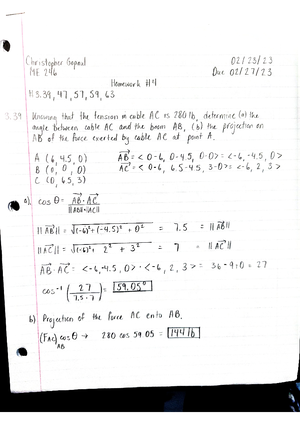 Christopher Gopaul 02/23/23
ME 246 Due 02/27/23
Homework #4
#3.39, 47, 57, 59, 63
3.39 Knowing that the tension in cable AC is 280 lb, determine (a) the
angle between cable AC and the boom AB, (b) the projection on
AB of the force exerted by cable AC at point A.
A (6, 4.5, 0) AB = <0-6, 0-4.5, 0-0> = <-6, -4.5, 0>
B (0, 0, 0) AC = <0-6, 6.5-4.5, 3-0> = <-6, 2, 3>
C (0, 6.5, 3)
a) cos θ = AB · AC
||AB|| * ||AC||
||AB|| = √(-6)² + (-4.5)² + 0² = 7.5 = ||AB||
||AC|| = √(-6)² + 2² + 3² = 7 = ||AC||
AB · AC = <-6, -4.5, 0> · <-6, 2, 3> = 36 - 9 + 0 = 27
cos⁻¹ (27 / 7.5 · 7) = 59.05°
b) Projection of the force AC onto AB.
(F_AC)_AB cos θ → 280 cos 59.05 = 144 lb